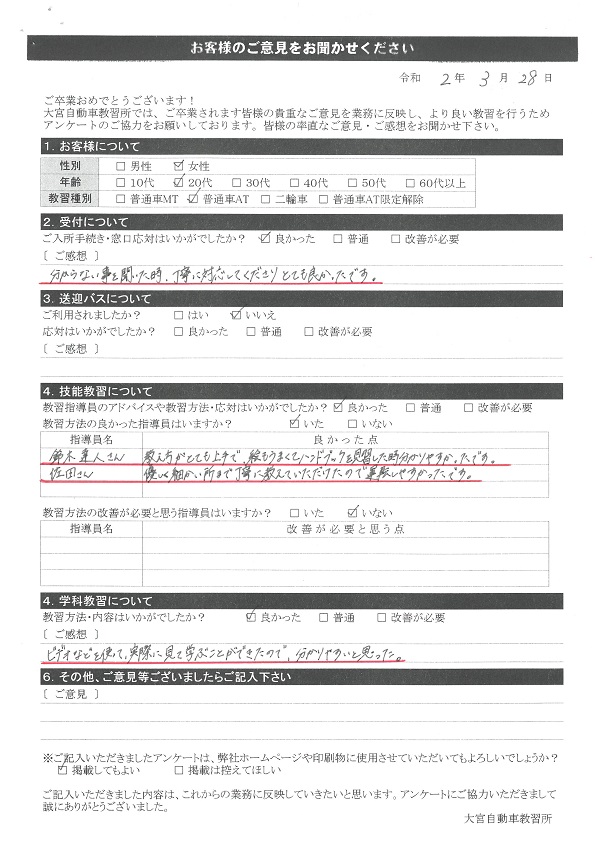 お客様のご意見をお聞かせください
令和 2 年 3 月 28 日
ご卒業おめでとうございます！
大宮自動車教習所では、ご卒業されます皆様の貴重なご意見を業務に反映し、より良い教習を行うため
アンケートのご協力をお願いしております。皆様の率直なご意見・ご感想をお聞かせ下さい。
1. お客様について
性別 □ 男性 ☑ 女性
年齢 □ 10代 ☑ 20代 □ 30代 □ 40代 □ 50代 □ 60代以上
教習種別 □ 普通車MT ☑ 普通車AT □ 二輪車 □ 普通車AT限定解除
2. 受付について
ご入所手続き・窓口応対はいかがでしたか？ ☑ 良かった □ 普通 □ 改善が必要
〔 ご感想 〕
分からない事を聞いた時、丁寧に対応してくださりとても良かったです。
3. 送迎バスについて
ご利用されましたか？ □ はい ☑ いいえ
応対はいかがでしたか？ □ 良かった □ 普通 □ 改善が必要
〔 ご感想 〕
4. 技能教習について
教習指導員のアドバイスや教習方法・応対はいかがでしたか？ ☑ 良かった □ 普通 □ 改善が必要
教習方法の良かった指導員はいますか？ ☑ いた □ いない
指導員名 良かった点
鈴木 直人さん 教え方がとても上手で、絵もうまくてハンドブックを見習した時分かりやすかったです。
佐田さん 優しく細かい所まで丁寧に教えていただけたので運転しやすかったです。
教習方法の改善が必要と思う指導員はいますか？ □ いた ☑ いない
指導員名 改善が必要と思う点
4. 学科教習について
教習方法・内容はいかがでしたか？ ☑ 良かった □ 普通 □ 改善が必要
〔 ご感想 〕
ビデオなどを使って、実際に見て学ぶことができたので、分かりやすいと思った。
6. その他、ご意見等ございましたらご記入下さい
〔 ご意見 〕
※ご記入いただきましたアンケートは、弊社ホームページや印刷物に使用させていただいてもよろしいでしょうか？
☑ 掲載してもよい □ 掲載は控えてほしい
ご記入いただきました内容は、これからの業務に反映していきたいと思います。アンケートにご協力いただきまして
誠にありがとうございました。
大宮自動車教習所